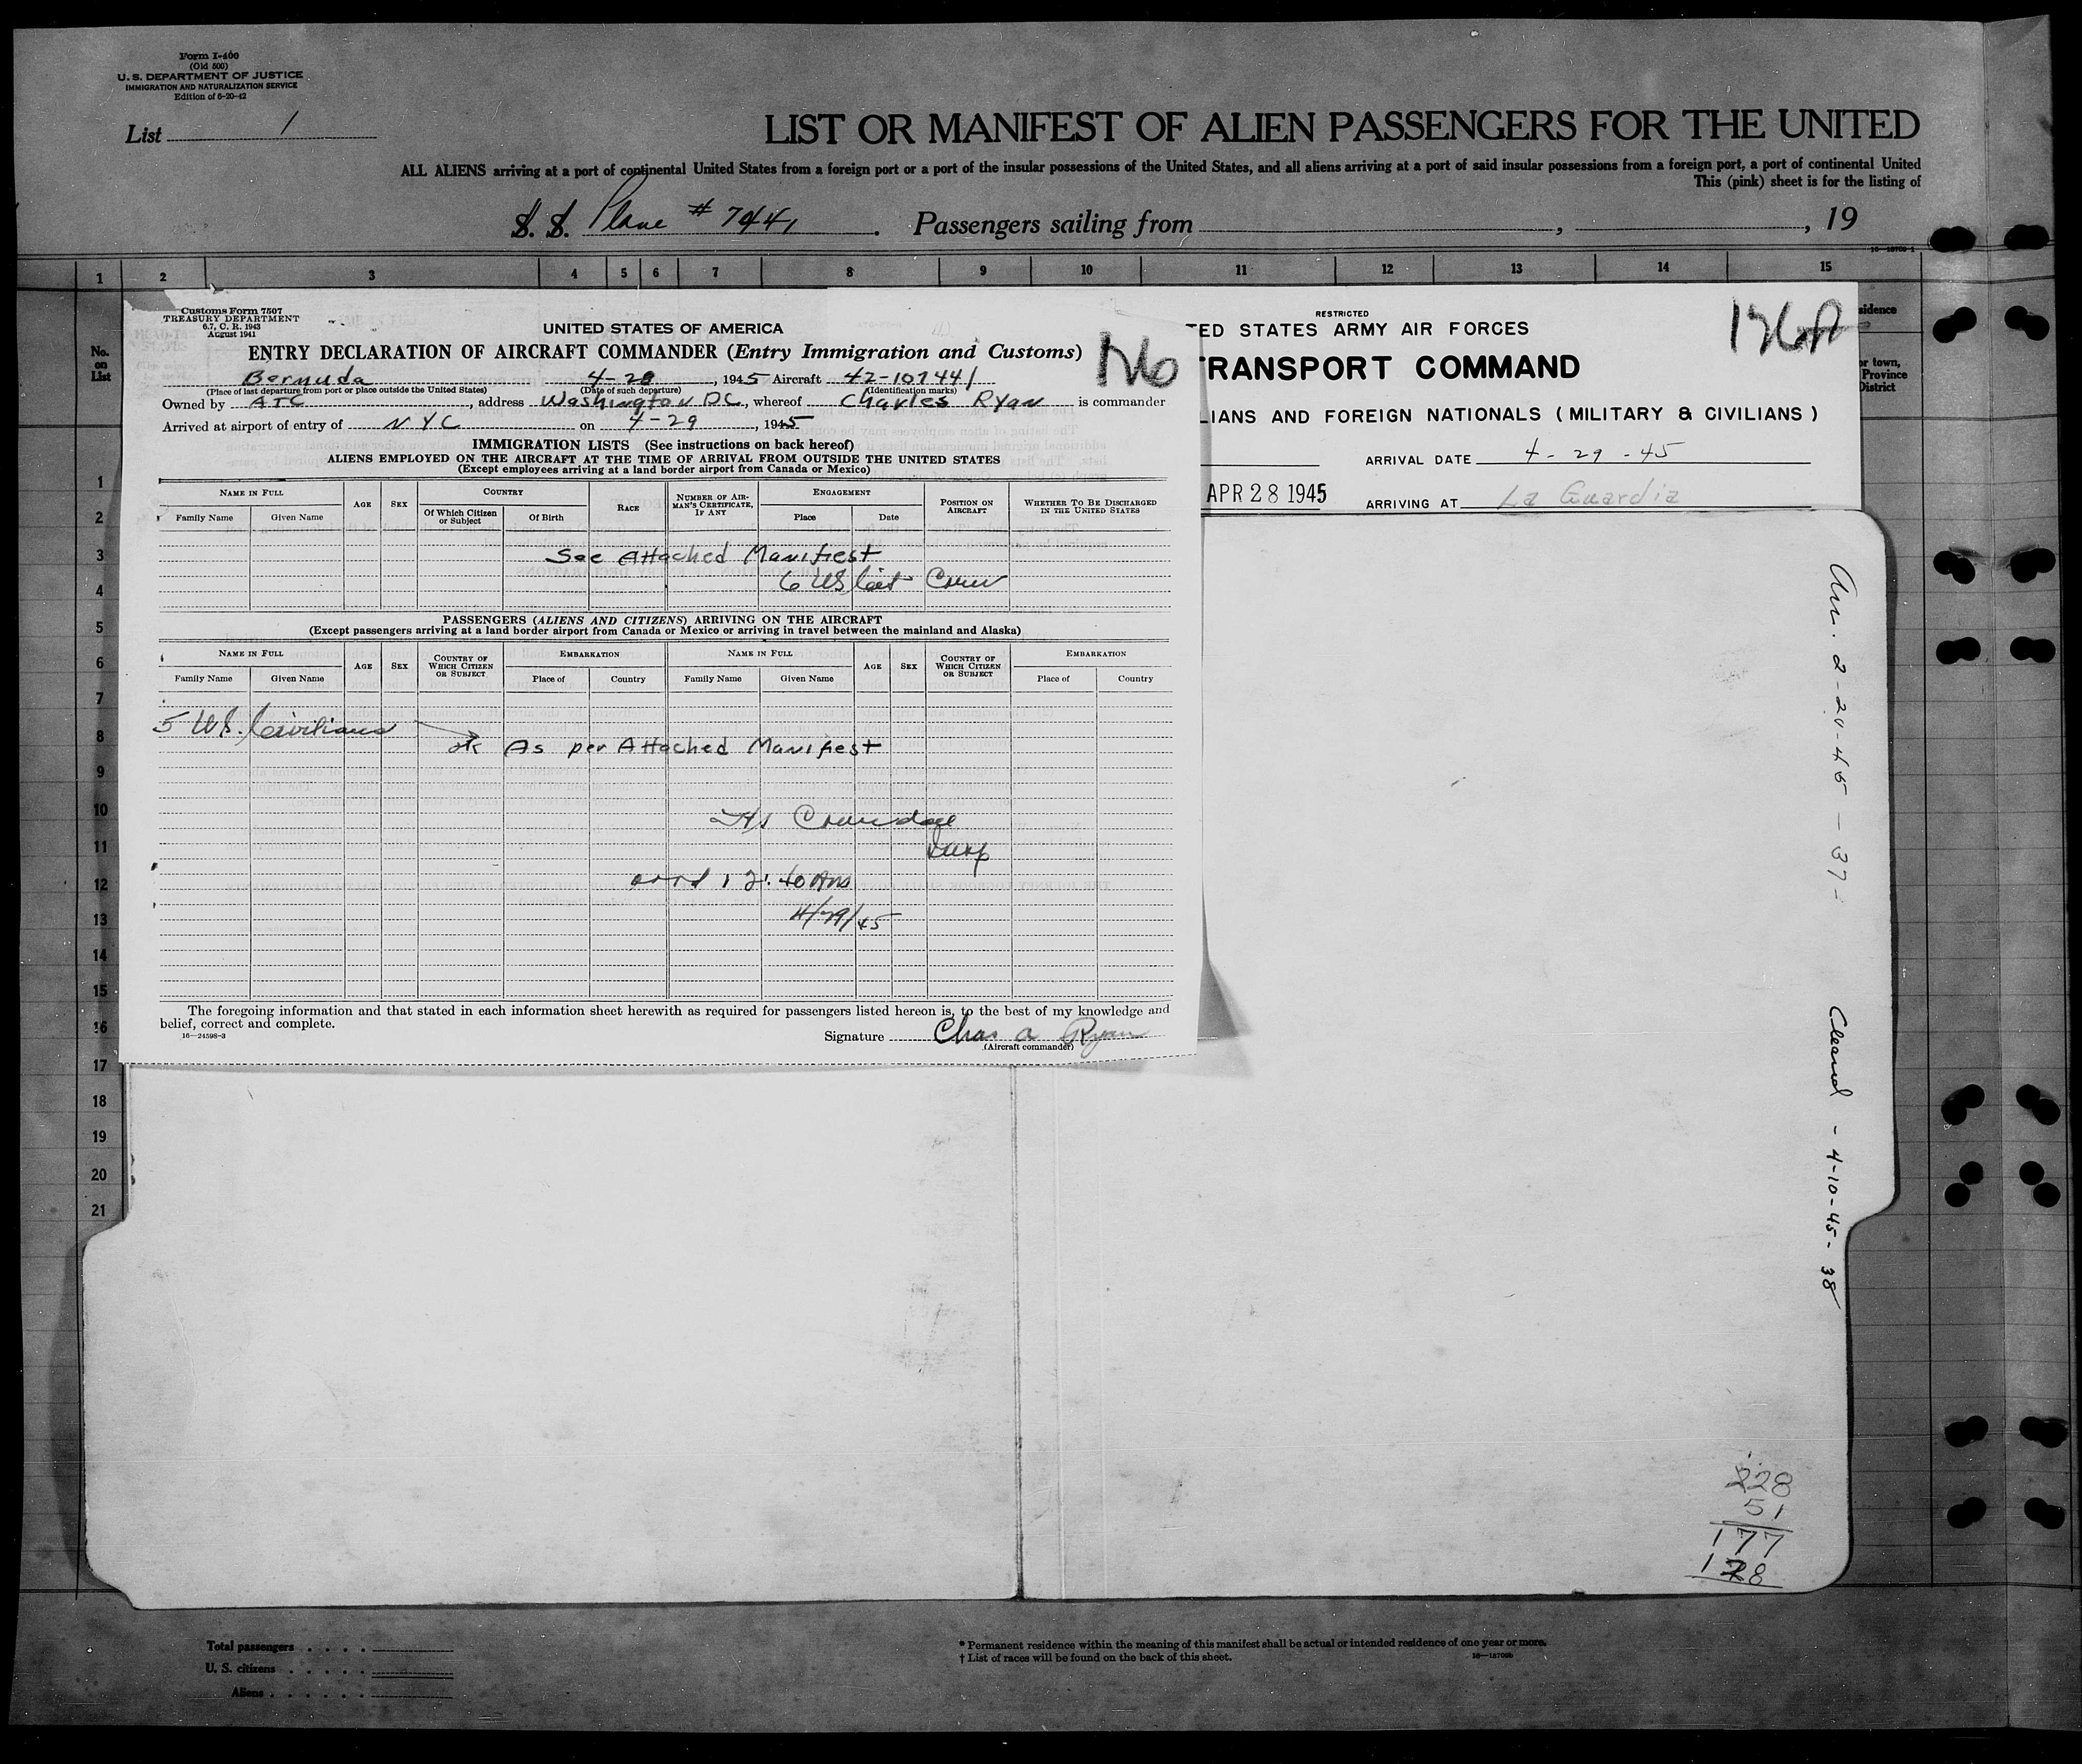 Form I-400
(Old 500)
U. S. DEPARTMENT OF JUSTICE
IMMIGRATION AND NATURALIZATION SERVICE
Edition of 6-20-42
List 1
LIST OR MANIFEST OF ALIEN PASSENGERS FOR THE UNITED
ALL ALIENS arriving at a port of continental United States from a foreign port or a port of the insular possessions of the United States, and all aliens arriving at a port of said insular possessions from a foreign port, a port of continental United
This (pink) sheet is for the listing of
S. S. Plane # 7441. Passengers sailing from , , 19
1 2 3 4 5 6 7 8 9 10 11 12 13 14 15
No. on List
sidence
or town,
Province
District
Customs Form 7507
TREASURY DEPARTMENT
6.7, C. R. 1943
August 1941
UNITED STATES OF AMERICA
ENTRY DECLARATION OF AIRCRAFT COMMANDER (Entry Immigration and Customs)
Bermuda 4-28, 1945 Aircraft 42-107441
(Place of last departure from port or place outside the United States) (Date of such departure) (Identification marks)
Owned by ATC, address Washington DC, whereof Charles Ryan is commander
Arrived at airport of entry of NYC on 4-29, 1945
IMMIGRATION LISTS (See instructions on back hereof)
ALIENS EMPLOYED ON THE AIRCRAFT AT THE TIME OF ARRIVAL FROM OUTSIDE THE UNITED STATES
(Except employees arriving at a land border airport from Canada or Mexico)
NAME IN FULL AGE SEX COUNTRY RACE NUMBER OF AIRMAN'S CERTIFICATE, IF ANY ENGAGEMENT POSITION ON AIRCRAFT WHETHER TO BE DISCHARGED IN THE UNITED STATES
Family Name Given Name Of Which Citizen or Subject Of Birth Place Date
See Attached Manifest
6 US Cit Crew
PASSENGERS (ALIENS AND CITIZENS) ARRIVING ON THE AIRCRAFT
(Except passengers arriving at a land border airport from Canada or Mexico or arriving in travel between the mainland and Alaska)
NAME IN FULL AGE SEX COUNTRY OF WHICH CITIZEN OR SUBJECT EMBARKATION NAME IN FULL AGE SEX COUNTRY OF WHICH CITIZEN OR SUBJECT EMBARKATION
Family Name Given Name Place of Country Family Name Given Name Place of Country
5 U.S. Civilians
ok As per Attached Manifest
40 Am
4/29/45
The foregoing information and that stated in each information sheet herewith as required for passengers listed hereon is, to the best of my knowledge and
belief, correct and complete.
16—24598-3
Signature Chas a Ryan
(Aircraft commander)
RESTRICTED
TED STATES ARMY AIR FORCES
TRANSPORT COMMAND
LIANS AND FOREIGN NATIONALS (MILITARY & CIVILIANS)
ARRIVAL DATE 4-29-45
APR 28 1945
ARRIVING AT La Guardia
1
2
3
4
5
6
7
8
9
10
11
12
13
14
15
16
17
18
19
20
21
Cleared - 4-10-45 - 38
228
51
177
128
Total passengers
U. S. citizens
Aliens
* Permanent residence within the meaning of this manifest shall be actual or intended residence of one year or more.
† List of races will be found on the back of this sheet.